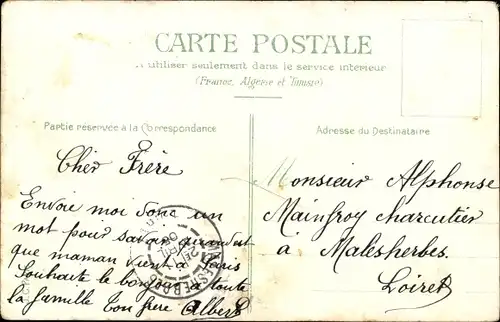 CARTE POSTALE
A utiliser seulement dans le service intérieur
(France, Algérie et Tunisie)
Partie réservée à la Correspondance
Adresse du Destinataire
Cher Frère
Envoie moi donc un
mot pour savoir quand est
que maman vient à Paris
Souhaite le bonjour à toute
la famille ton frère Albert
Monsieur Alphonse
Mainfroy charcutier
à Malesherbes
Loiret
MALESHERBES